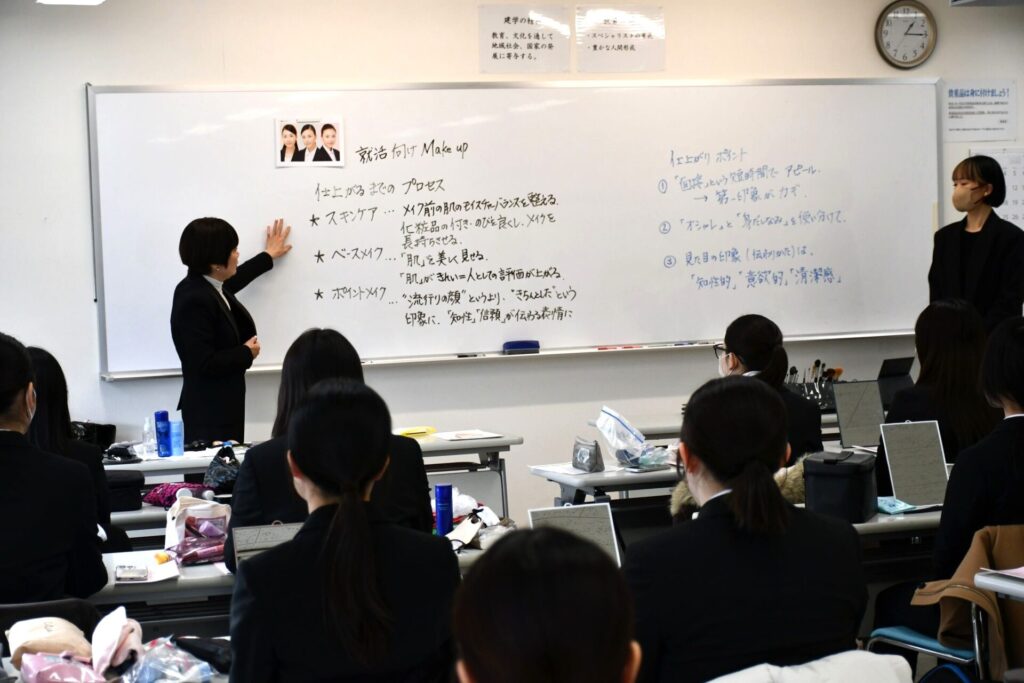 建学の
教育、文化を通して
地域社会、国家の発
展に寄与する。
・スペシャリストの育成
・豊かな人間形成
就活向け Make up
仕上がるまでの プロセス
★ スキンケア … メイク前の肌のモイスチャーバランスを整える。
化粧品の付き・のびを良くし、メイクを
長持ちさせる。
★ ベースメイク … 「肌」を美しく見せる。
「肌」がきれい=人としての評価が上がる。
★ ポイントメイク … "流行りの顔"というより、"きちんとした"という
印象に、「知性」「信頼」が伝わる表情に
仕上がり ポイント
① 「面接」という短時間で アピール。
→ 第一印象が カギ。
② 「オシャレ」と「身だしなみ」を使い分けて。
③ 見た目の印象(伝わりかた)は、
「知性的」「意欲的」「清潔感」
は身に付けましょう!